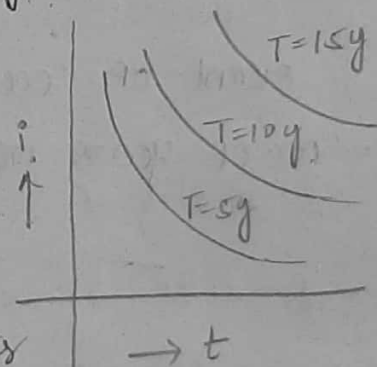 T=15y
T=10y
i
T=5y
→ t